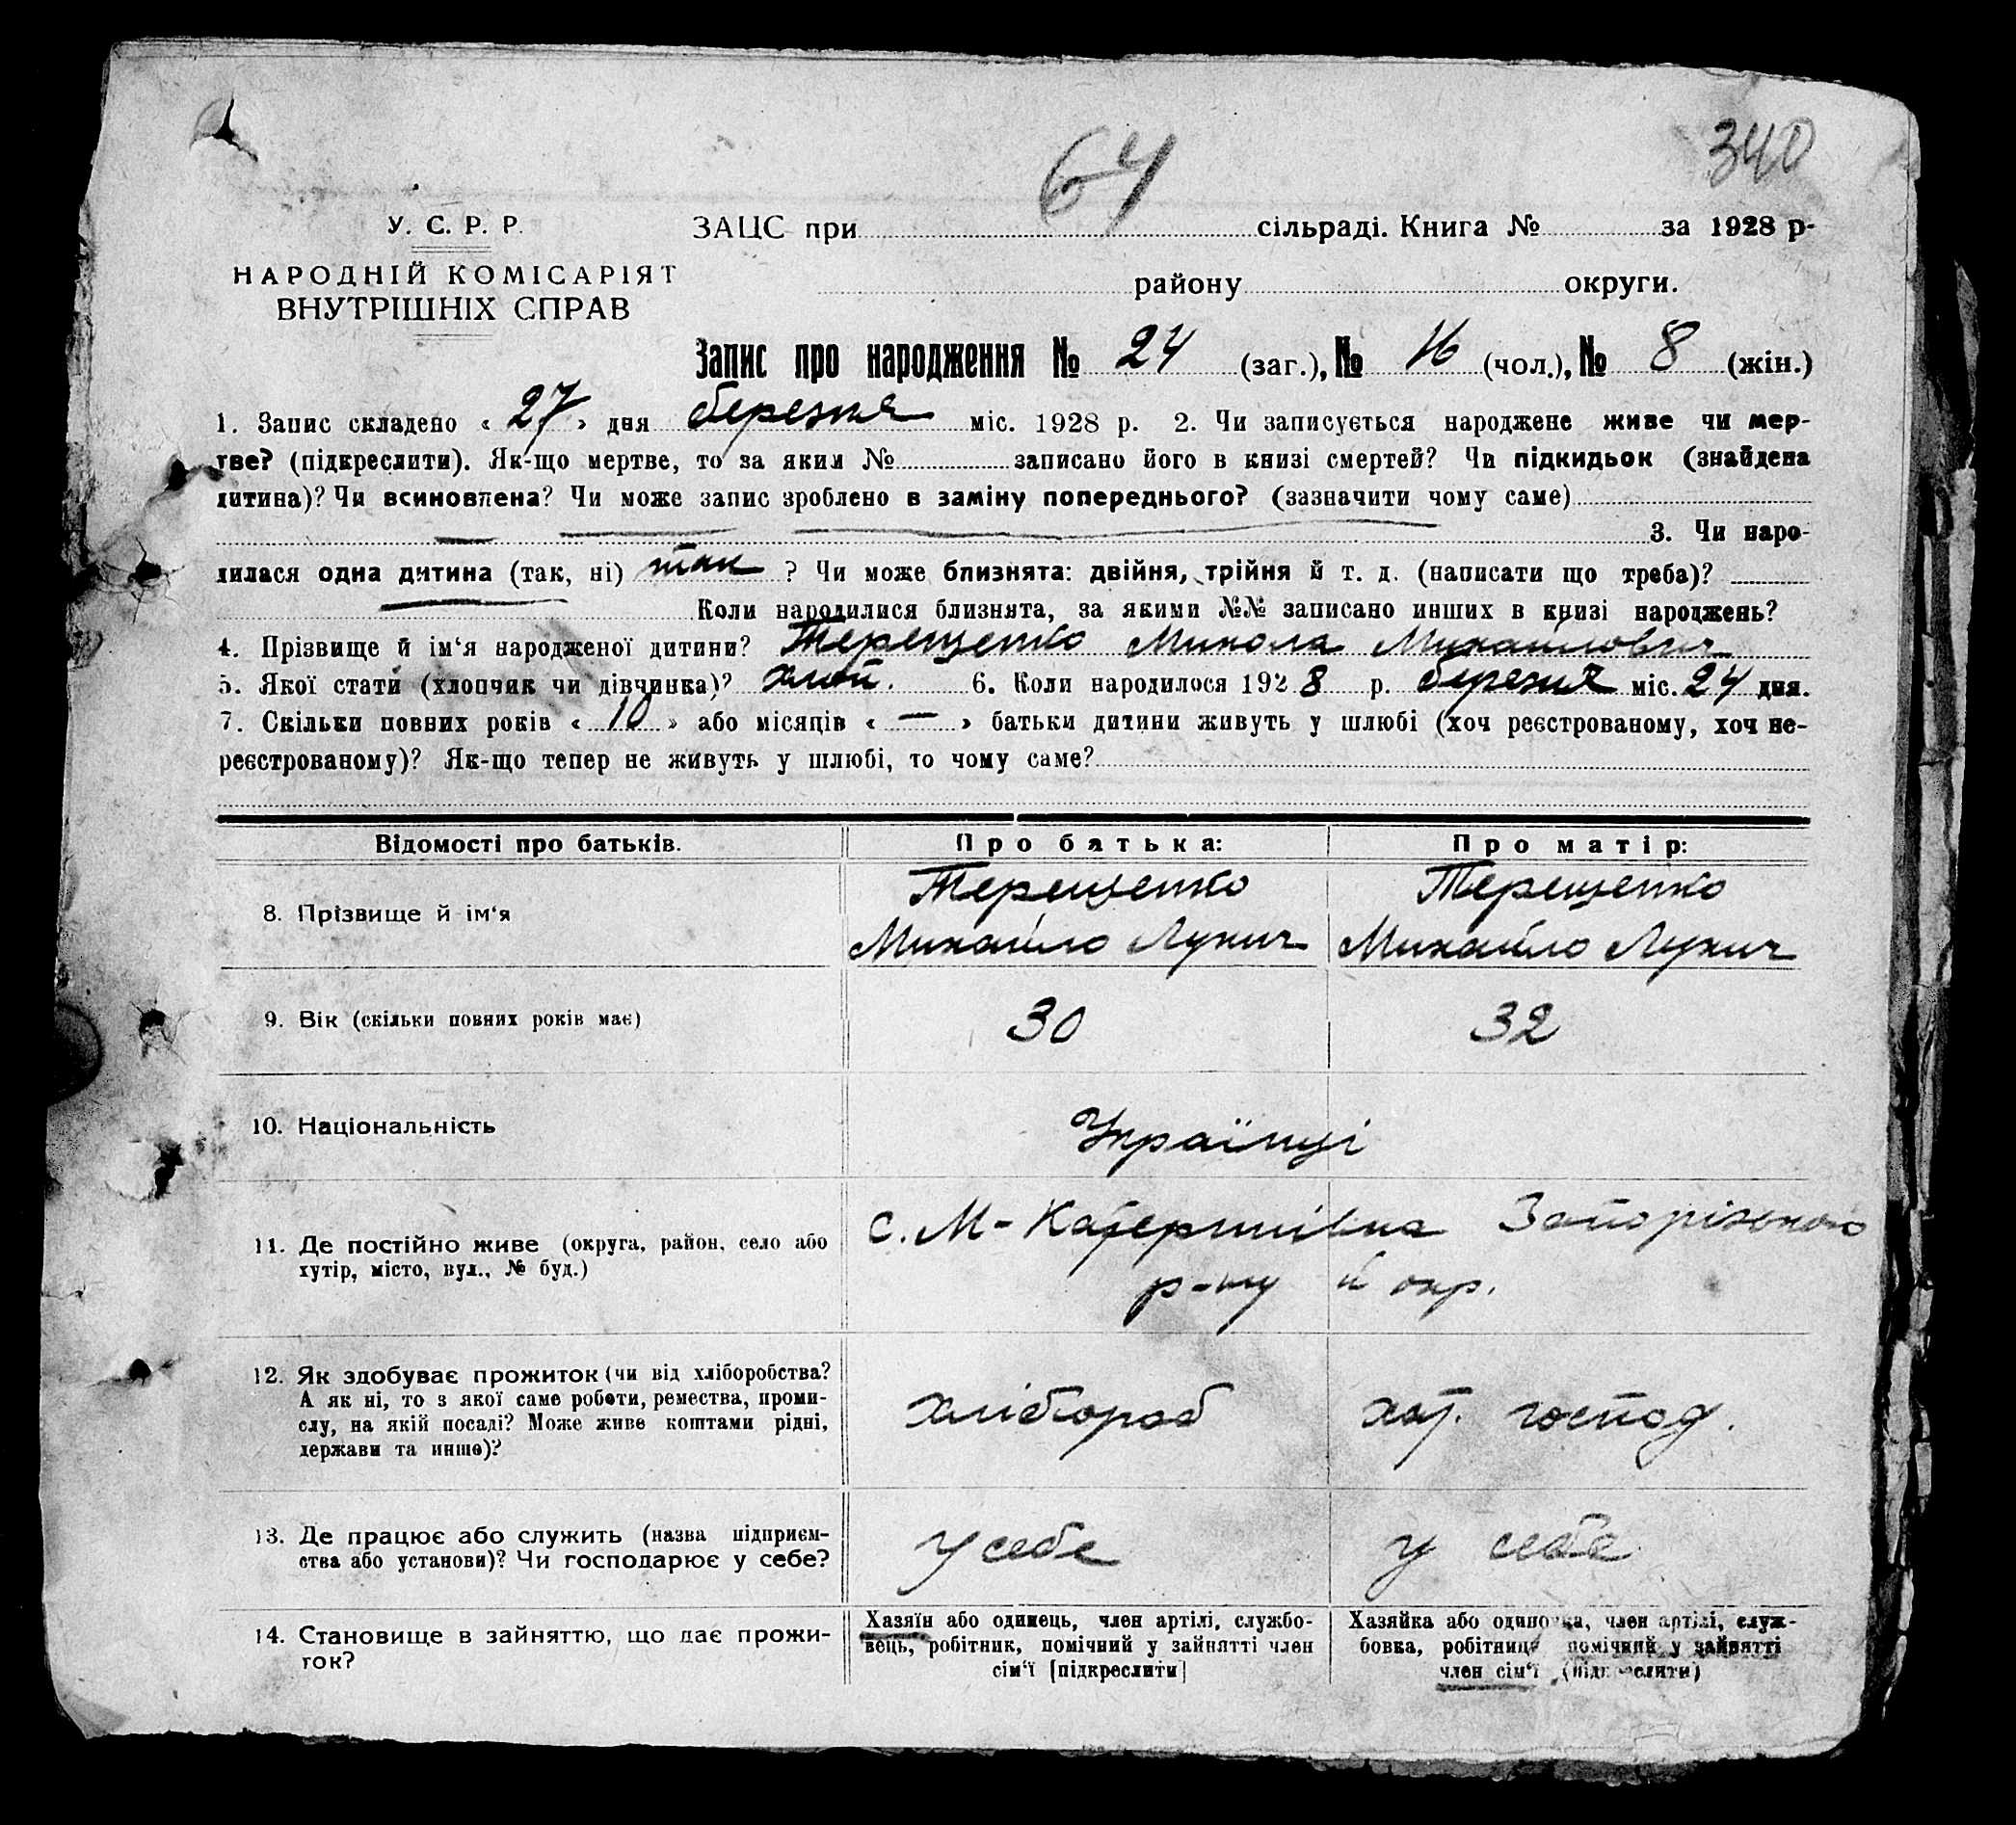 64
340
У. С. Р. Р.
ЗАЦС при сільраді. Книга № за 1928 р-
НАРОДНІЙ КОМІСАРІЯТ
ВНУТРІШНІХ СПРАВ
району округи.
Запис про народження № 24 (заг.), № 16 (чол.), № 8 (жін.)
1. Запис складено « 27 » дня березня міс. 1928 р. 2. Чи записується народжене живе чи мер-
тве? (підкреслити). Як-що мертве, то за яким № записано його в книзі смертей? Чи підкидьок (знайдена
дитина)? Чи всиновлена? Чи може запис зроблено в заміну попереднього? (зазначити чому саме)
3. Чи наро-
дилася одна дитина (так, ні) так ? Чи може близнята: двійня, трійня й т. д. (написати що треба)?
Коли народилися близнята, за якими №№ записано инших в книзі народжень?
4. Прізвище й ім‘я народженої дитини? Терещенко Микола Михайлович
5. Якої стати (хлопчик чи дівчинка)? хлоп. 6. Коли народилося 1928 р. березня міс. 24 дня.
7. Скільки повних років « 10 » або місяців « — » батьки дитини живуть у шлюбі (хоч реєстрованому, хоч не-
реєстрованому)? Як-що тепер не живуть у шлюбі, то чому саме?
Відомості про батьків. Про батька: Про матір:
8. Прізвище й ім‘я Терещенко Терещенко
Михайло Лукич Михайло Лукич
9. Вік (скільки повних років має) 30 32
10. Національність Українці
11. Де постійно живе (округа, район, село або хутір, місто, вул., № буд.) с. М-Катеринівка Запорізького
р-ну й окр.
12. Як здобуває прожиток (чи від хліборобства?
А як ні, то з якої саме роботи, ремества, проми-
слу, на якій посаді? Може живе коштами рідні,
держави та инше)? хлібороб хат. господ.
13. Де працює або служить (назва підприєм-
ства або установи)? Чи господарює у себе? у себе у себе
14. Становище в зайняттю, що дає прожи-
ток?
Хазяїн або одинець, член артілі, службо-
вець, робітник, помічний у зайнятті член
сім‘ї [підкреслити]
Хазяйка або одиночка, член артілі, служ-
бовка, робітниця помічний у зайнятті
член сім‘ї (підкреслити)